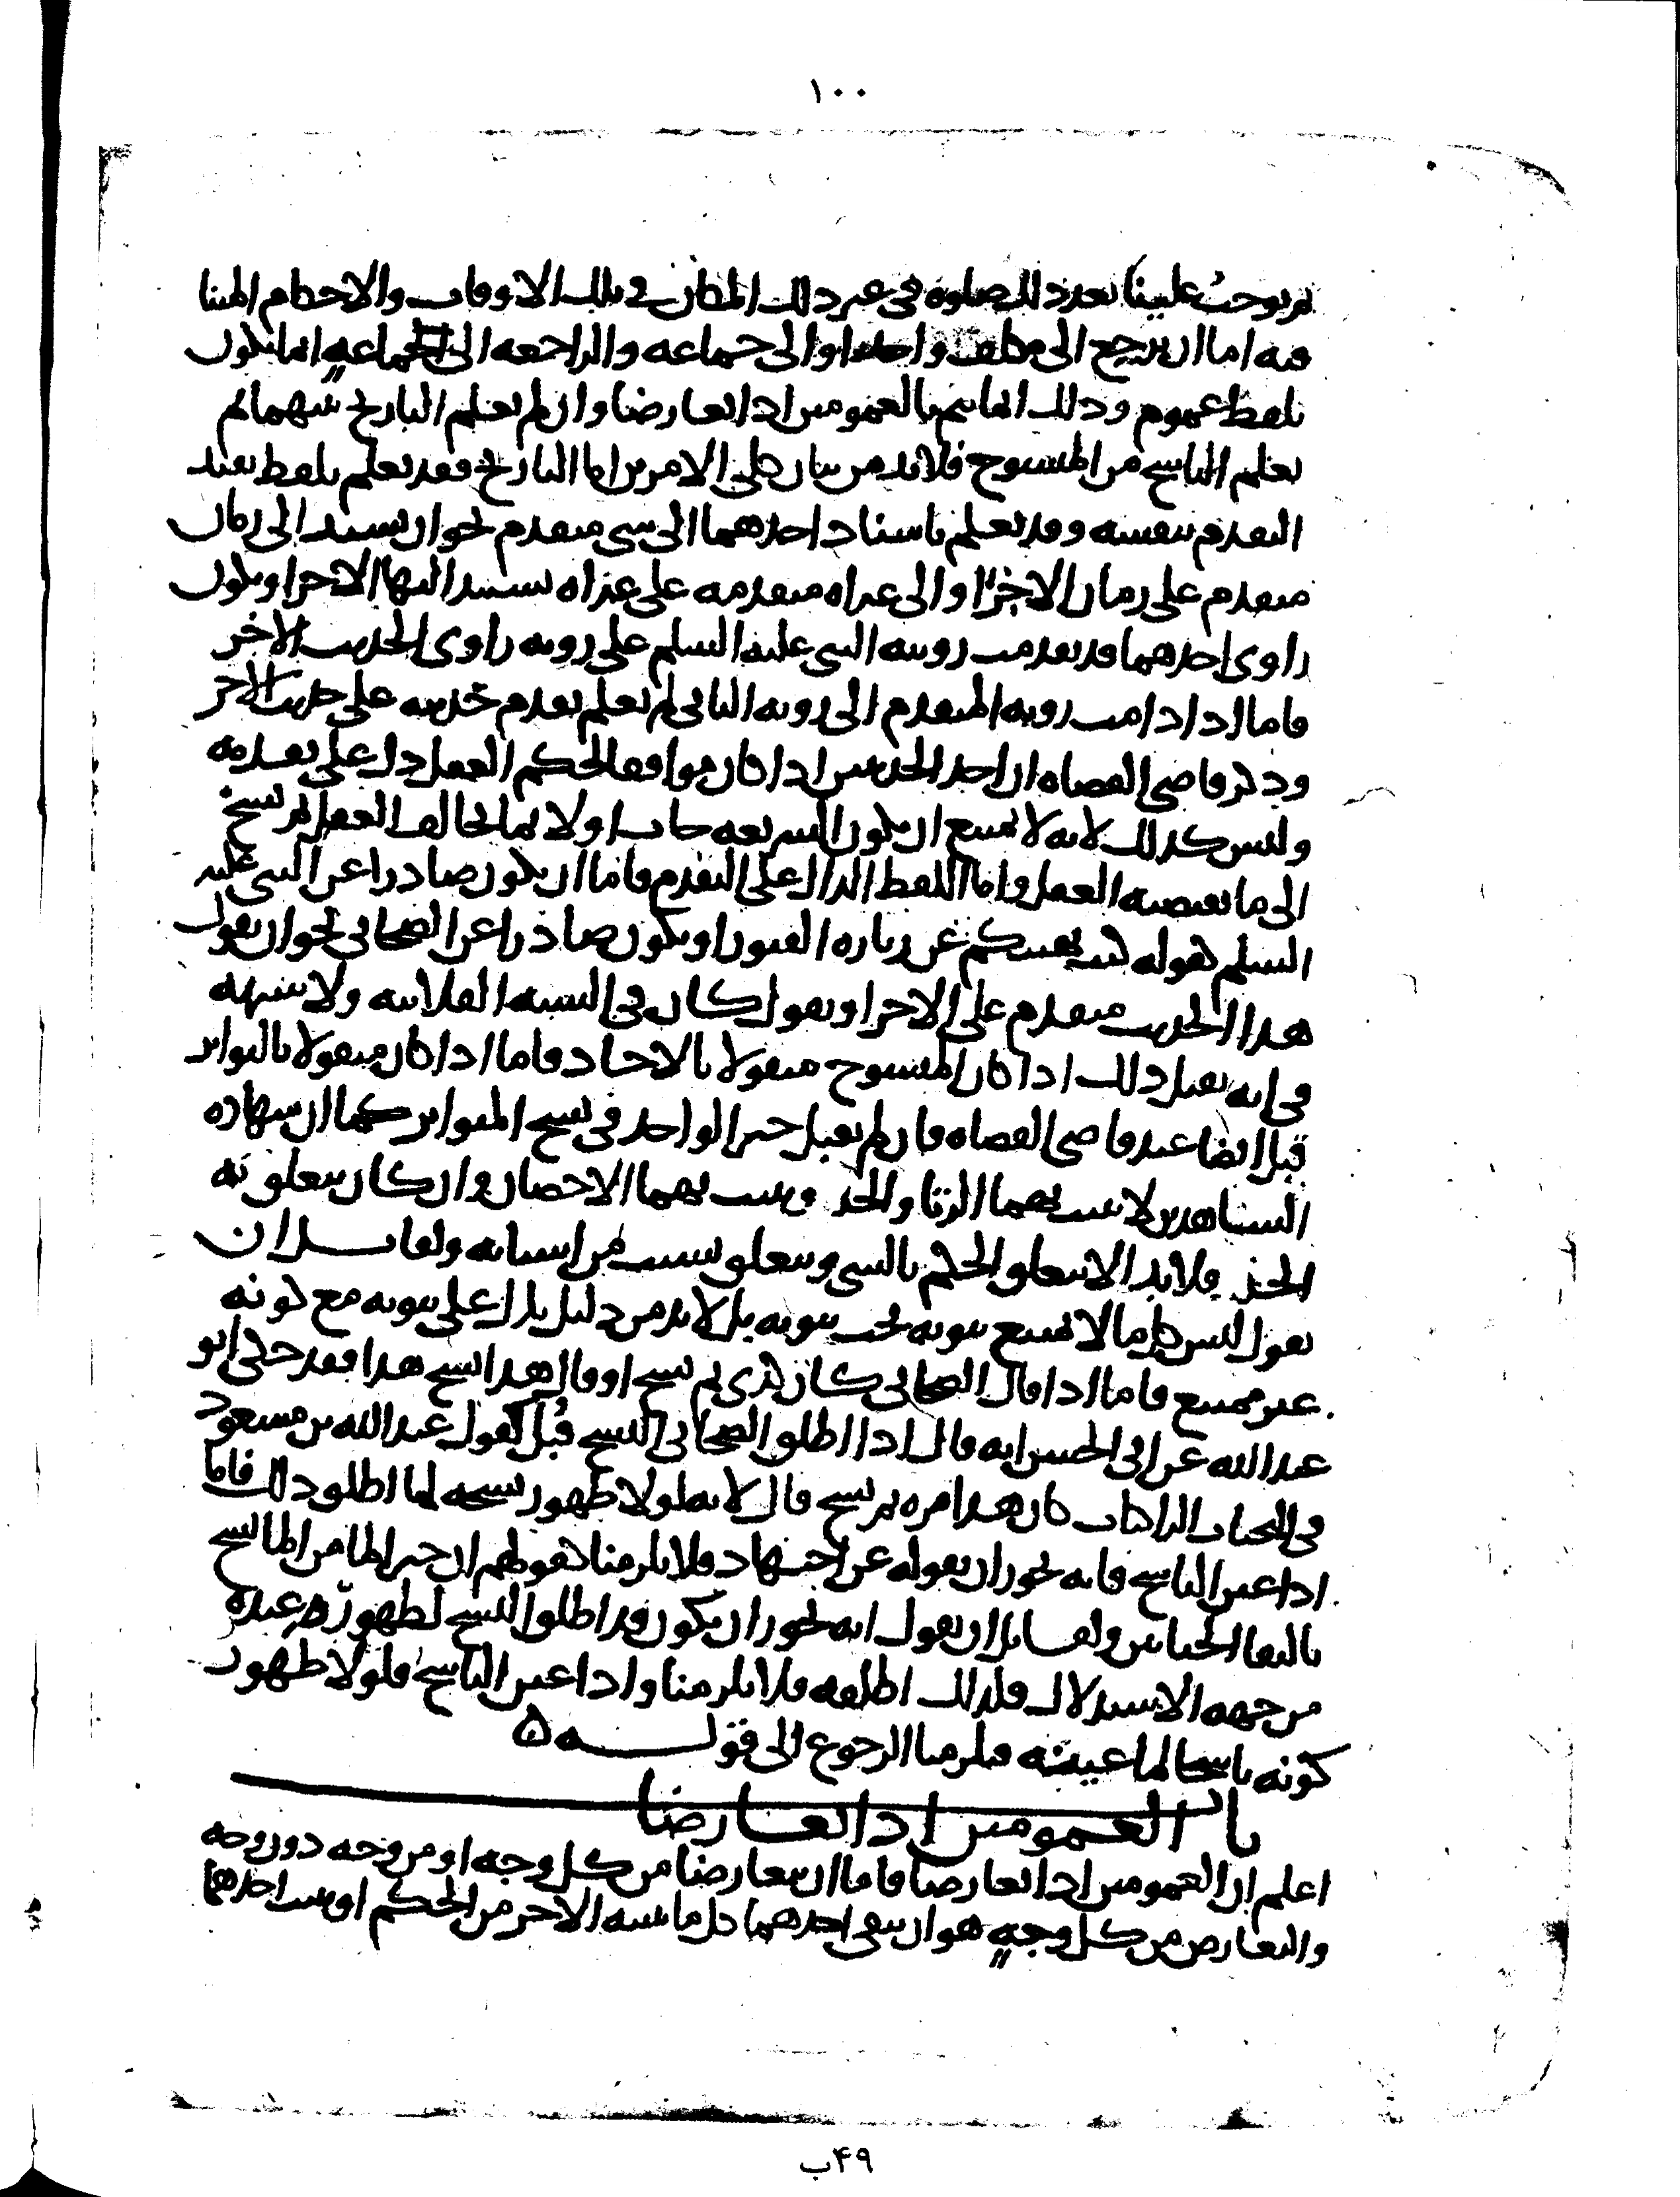 ١٠٠
ثم يوجب علينا بعد ذلك صلوة في غير ذلك المكان في تلك الاوقات والاحكام المتنا
فيه اما ان يرجع الى مكلف واحد او الى جماعة والراجعة الى الجماعة انما يكون
بلفظ عموم وذلك انما يتم بالعمومين اذا تعارضا وان لم يعلم التاريخ بينهما لم
يعلم الناسخ من المنسوخ فلابد من بيان كلى الامرين اما التاريخ فقد يعلم بلفظ يفيد
التقدم بنفسه وقد يعلم باسناد احدهما الى شي متقدم نحو ان يسند الى زمان
متقدم على زمان الاخر او الى غزاه متقدمه على غزاه يستند اليها الاخر او يكون
راوى احدهما قد تقدمت رويته النبي عليه السلم على رويه راوى الحديث الاخر
فاما اذا دامت رويه المتقدم الى رويه الثاني لم يعلم تقدم حديثه على حديث الاخر
وذكر قاضي القضاه ان احد الحديثين اذا كان موافقا لحكم العقل دل على تقدمه
وليس كذلك لانه لا يمتنع ان يكون الشريعه جات اولا بما يخالف العقل ثم نسخ
الى ما يقتضيه العقل واما اللفظ الدال على التقدم فاما ان يكون صادرا عن النبي عليه
السلم كقوله كنت نهيتكم عن زياره القبور او يكون صادرا عن الصحابي نحو ان يقول
هذا الحديث متقدم على الاخر او يقول كان في السنه الفلانيه ولا شبهه
في انه يقبل ذلك اذا كان المنسوخ منقولا بالاحاد فاما اذا كان منقولا بالتواتر
قبل ايضا عند قاضي القضاه فان لم يقبل خبر الواحد في نسخ المتواتر كما ان شهاده
الشاهدين لا يثبت بهما الزنا والحد ويثبت بهما الاحصان وان كان يتعلق به
الحد فلابد الا يتعلق الحكم بالشي ويتعلق بسبب من اسبابه ولقايل ان
يقول ليس كل ما لا يمتنع ثبوته يجب ثبوته بل لابد من دليل يدل على ثبوته مع كونه
غير ممتنع فاما اذا قال الصحابي كان كذى ثم نسخ او قال هذا نسخ هذا فقد حكى ابو
عبد الله عن ابي الحسن انه قال اذا اطلق الصحابي النسخ قبل كقول عبد الله بن مسعود
في التحيات الزاكيات كان هذا مره ثم نسخ قال لانه لولا ظهور نسخه لما اطلق ذلك فاما
اذا عين الناسخ فانه يجوز ان يقوله عن اجتهاد فلا يلزمنا كقولهم ان خبر الما من الما نسخ
بالتقا الختانين ولقايل ان يقول انه يجوز ان يكون قد اطلق النسخ لظهوره عنده
من جهه الاستدلال فلذلك اطلقه فلا يلزمنا واذا عين الناسخ فلولا ظهور
كونه ناسخا لما عينه فلزمنا الرجوع الى قوله ه
باب العمومين اذا تعارضا
اعلم ان العمومين اذا تعارضا فاما ان يتعارضا من كل وجه او من وجه دون وجه
والتعارض من كل وجه هو ان ينفي احدهما كل ما يثبته الاخر من الحكم او يثبت احدهما
٤٩ب